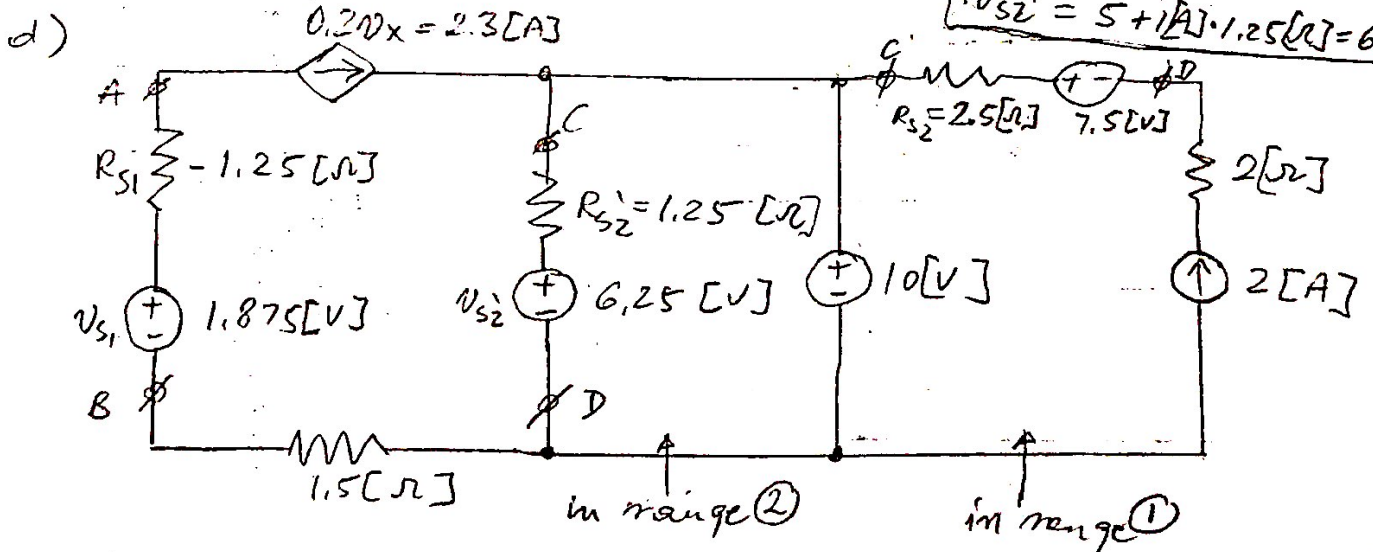 d)
0.2vx = 2.3[A]
vs2' = 5 + 1[A]·1.25[Ω] = 6
A
C
C
D
Rs2 = 2.5[Ω]
7.5[V]
Rs1
-1.25[Ω]
Rs2' = 1.25[Ω]
2[Ω]
vs1
+
-
1.875[V]
vs2'
+
-
6,25[V]
+
-
10[V]
2[A]
B
D
1.5[Ω]
in range ②
in range ①